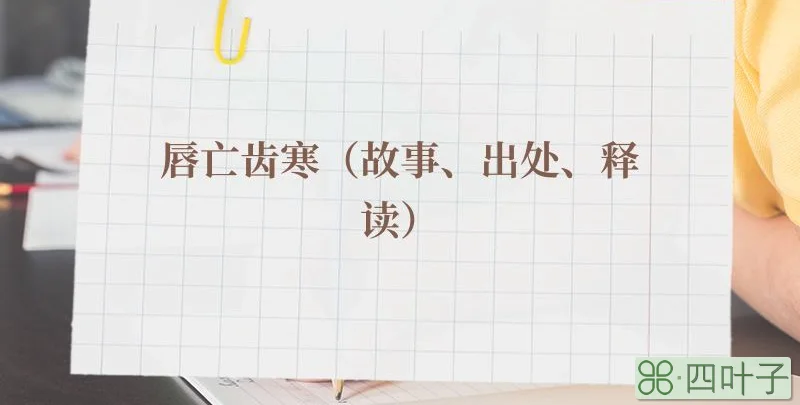 唇亡齿寒（故事、出处、释
读）
四叶子